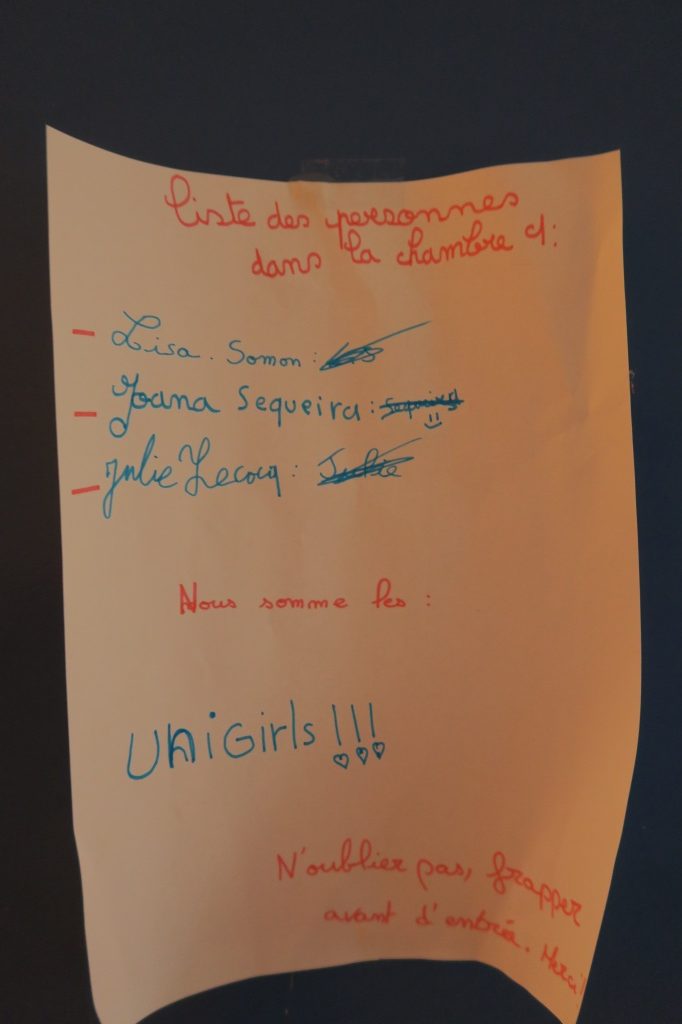 Liste des personnes
dans la chambre 4:
- Lisa. Somon:
- Joana Sequeira:
- Julie Lecocq: Julie
Nous somme les :
UniGirls!!!
N'oublier pas, frapper
avant d'entrée. Merci!